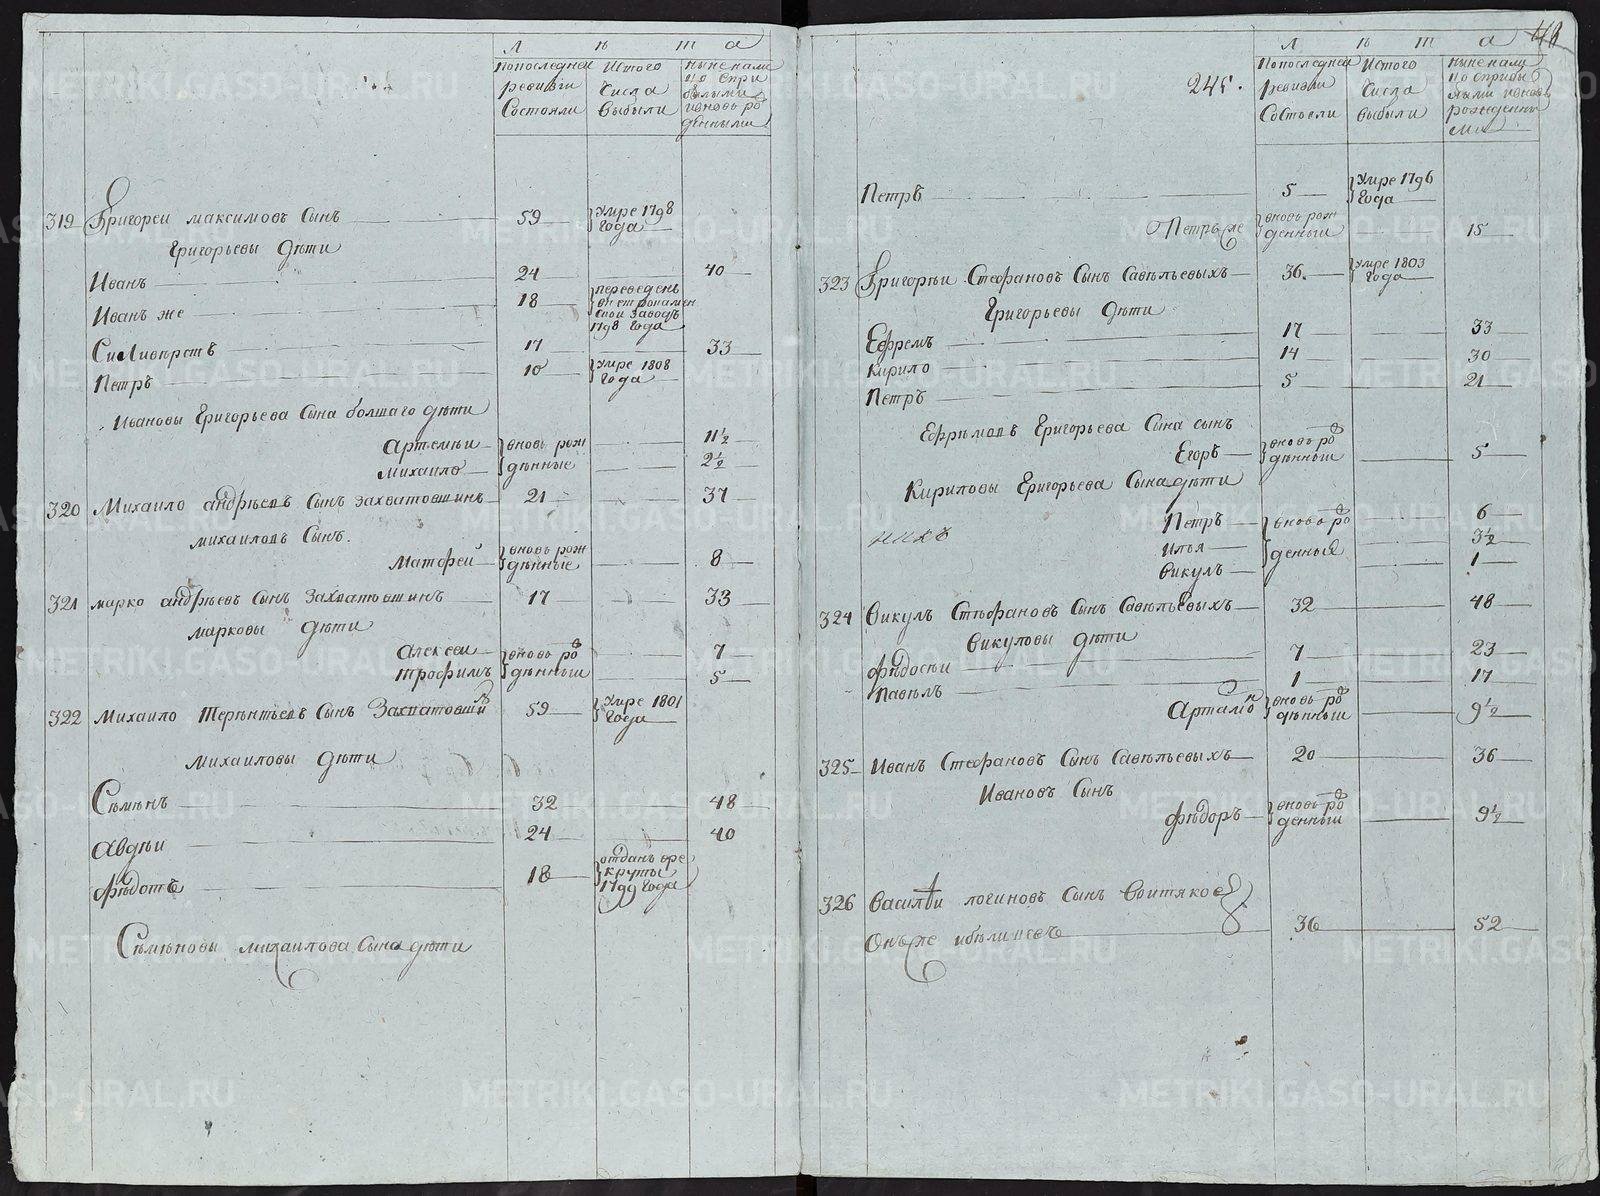 Л ѣ т а
Попоследней ревизіи Состояли
Истого Числа Выбыли
ныне налицо
319 Григореи максимовъ Сынъ 59 Умре 1798 Года
Григорьевы дѣти
Иванъ 24 40
Иванъ же 18 переведенъ
Заводъ 1798 Года
Силивѣрстъ 17 33
Петръ 10 Умре 1808 Года
Ивановы Григорьева Сына болшаго дѣти
Артемѣи вновь рож 11½
михаило дѣнные 2½
320 Михаило андрѣевъ Сынъ захватошинъ 21 37
михаиловъ Сынъ
Матфей вновь рож дѣнные 8
321 марко андрѣевъ Сынъ Захватошинъ 17 33
марковы дѣти
Алексеи вновь ро 7
трофимъ дѣнныи 5
322 Михаило Терѣнтьевъ Сынъ Захватошинъ 59 Умре 1801 Года
михаиловы дѣти
Сѣмѣнъ 32 48
Авдѣи 24 40
Фѣдотъ 18 отданъ вре круты 1799 Года
Сѣмѣновы михаилова Сына дѣти
Л ѣ т а
245.
Попоследней ревизіи Состояли
Истого Числа выбыли
ныне налицо
Петръ 5 Умре 1796 Года
Петръ же вновь рож денныи 15
323 Григорѣи Стефановъ Сынъ Савѣльевыхъ 36. Умре 1803 Года
Григорьевы дѣти
Ефремъ 17 33
Кирило 14 30
Петръ 5 21
Ефрѣмовъ Григорьева Сына сынъ
Егоръ вновь ро дѣнныи 5
Кириловы Григорьева Сына дѣти
Петръ вновь ро 6
илья денные 3½
викулъ 1
324 Викулъ Стефановъ Сынъ Савѣльевыхъ 32 48
Викуловы дѣти
Фѣдосѣи 7 23
Павѣлъ 1 17
Артамонъ вновь ро дѣнныи 9½
325 Иванъ Стефановъ Сынъ Савѣльевыхъ 20 36
Ивановъ Сынъ
Фѣдоръ вновь ро денныи 9½
326 Василѣи логиновъ Сынъ
Онъ же 36 52
METRIKI.GASO-URAL.RU